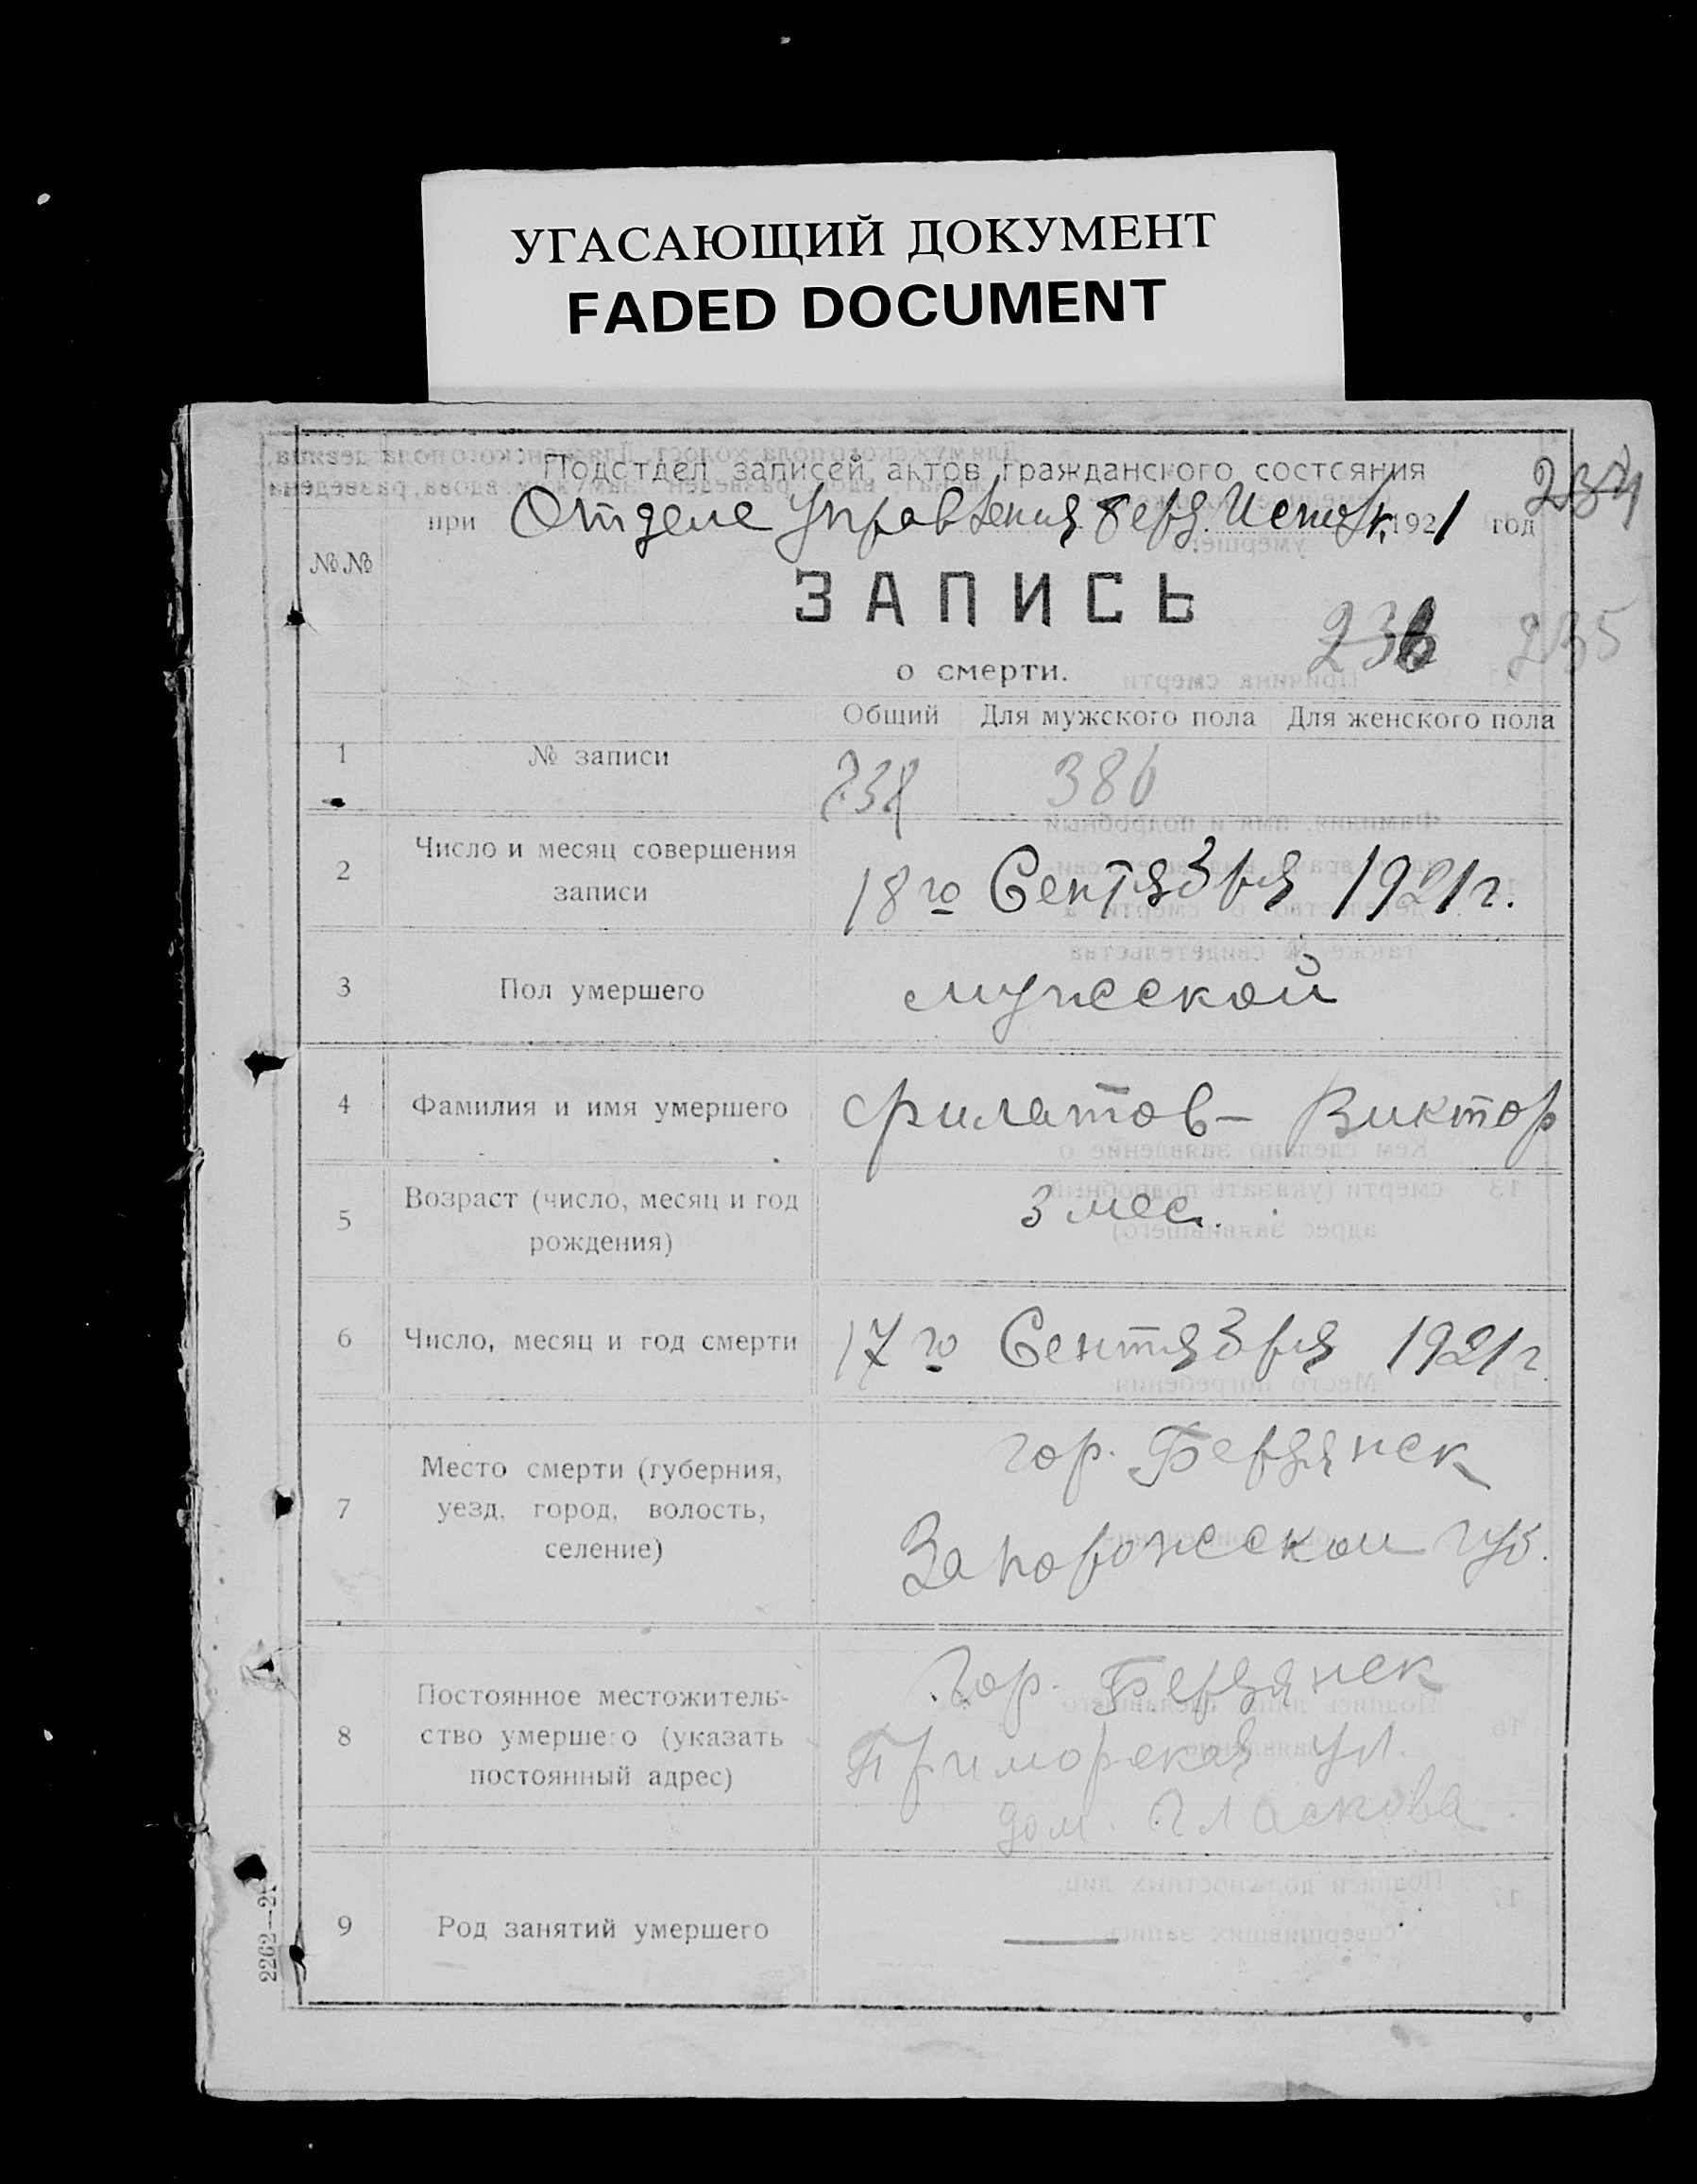 УГАСАЮЩИЙ ДОКУМЕНТ
FADED DOCUMENT
Подотдел записей актов гражданского состояния
при Отделе Управления Берд. Исполк. 1921 год
234
№№
ЗАПИСЬ
236 235
о смерти.
Общий Для мужского пола Для женского пола
1 № записи 738 386
2 Число и месяц совершения
записи
18го Сентября 1921 г.
3 Пол умершего мужской
4 Фамилия и имя умершего Филатов - Виктор
5 Возраст (число, месяц и год
рождения)
3 мес.
6 Число, месяц и год смерти 17го Сентября 1921 г.
7 Место смерти (губерния,
уезд, город, волость,
селение)
гор. Бердянск
Запорожской губ.
8 Постоянное местожитель-
ство умершего (указать
постоянный адрес)
Гор. Бердянск
Приморская ул.
дом.
9 Род занятий умершего —
2262—21